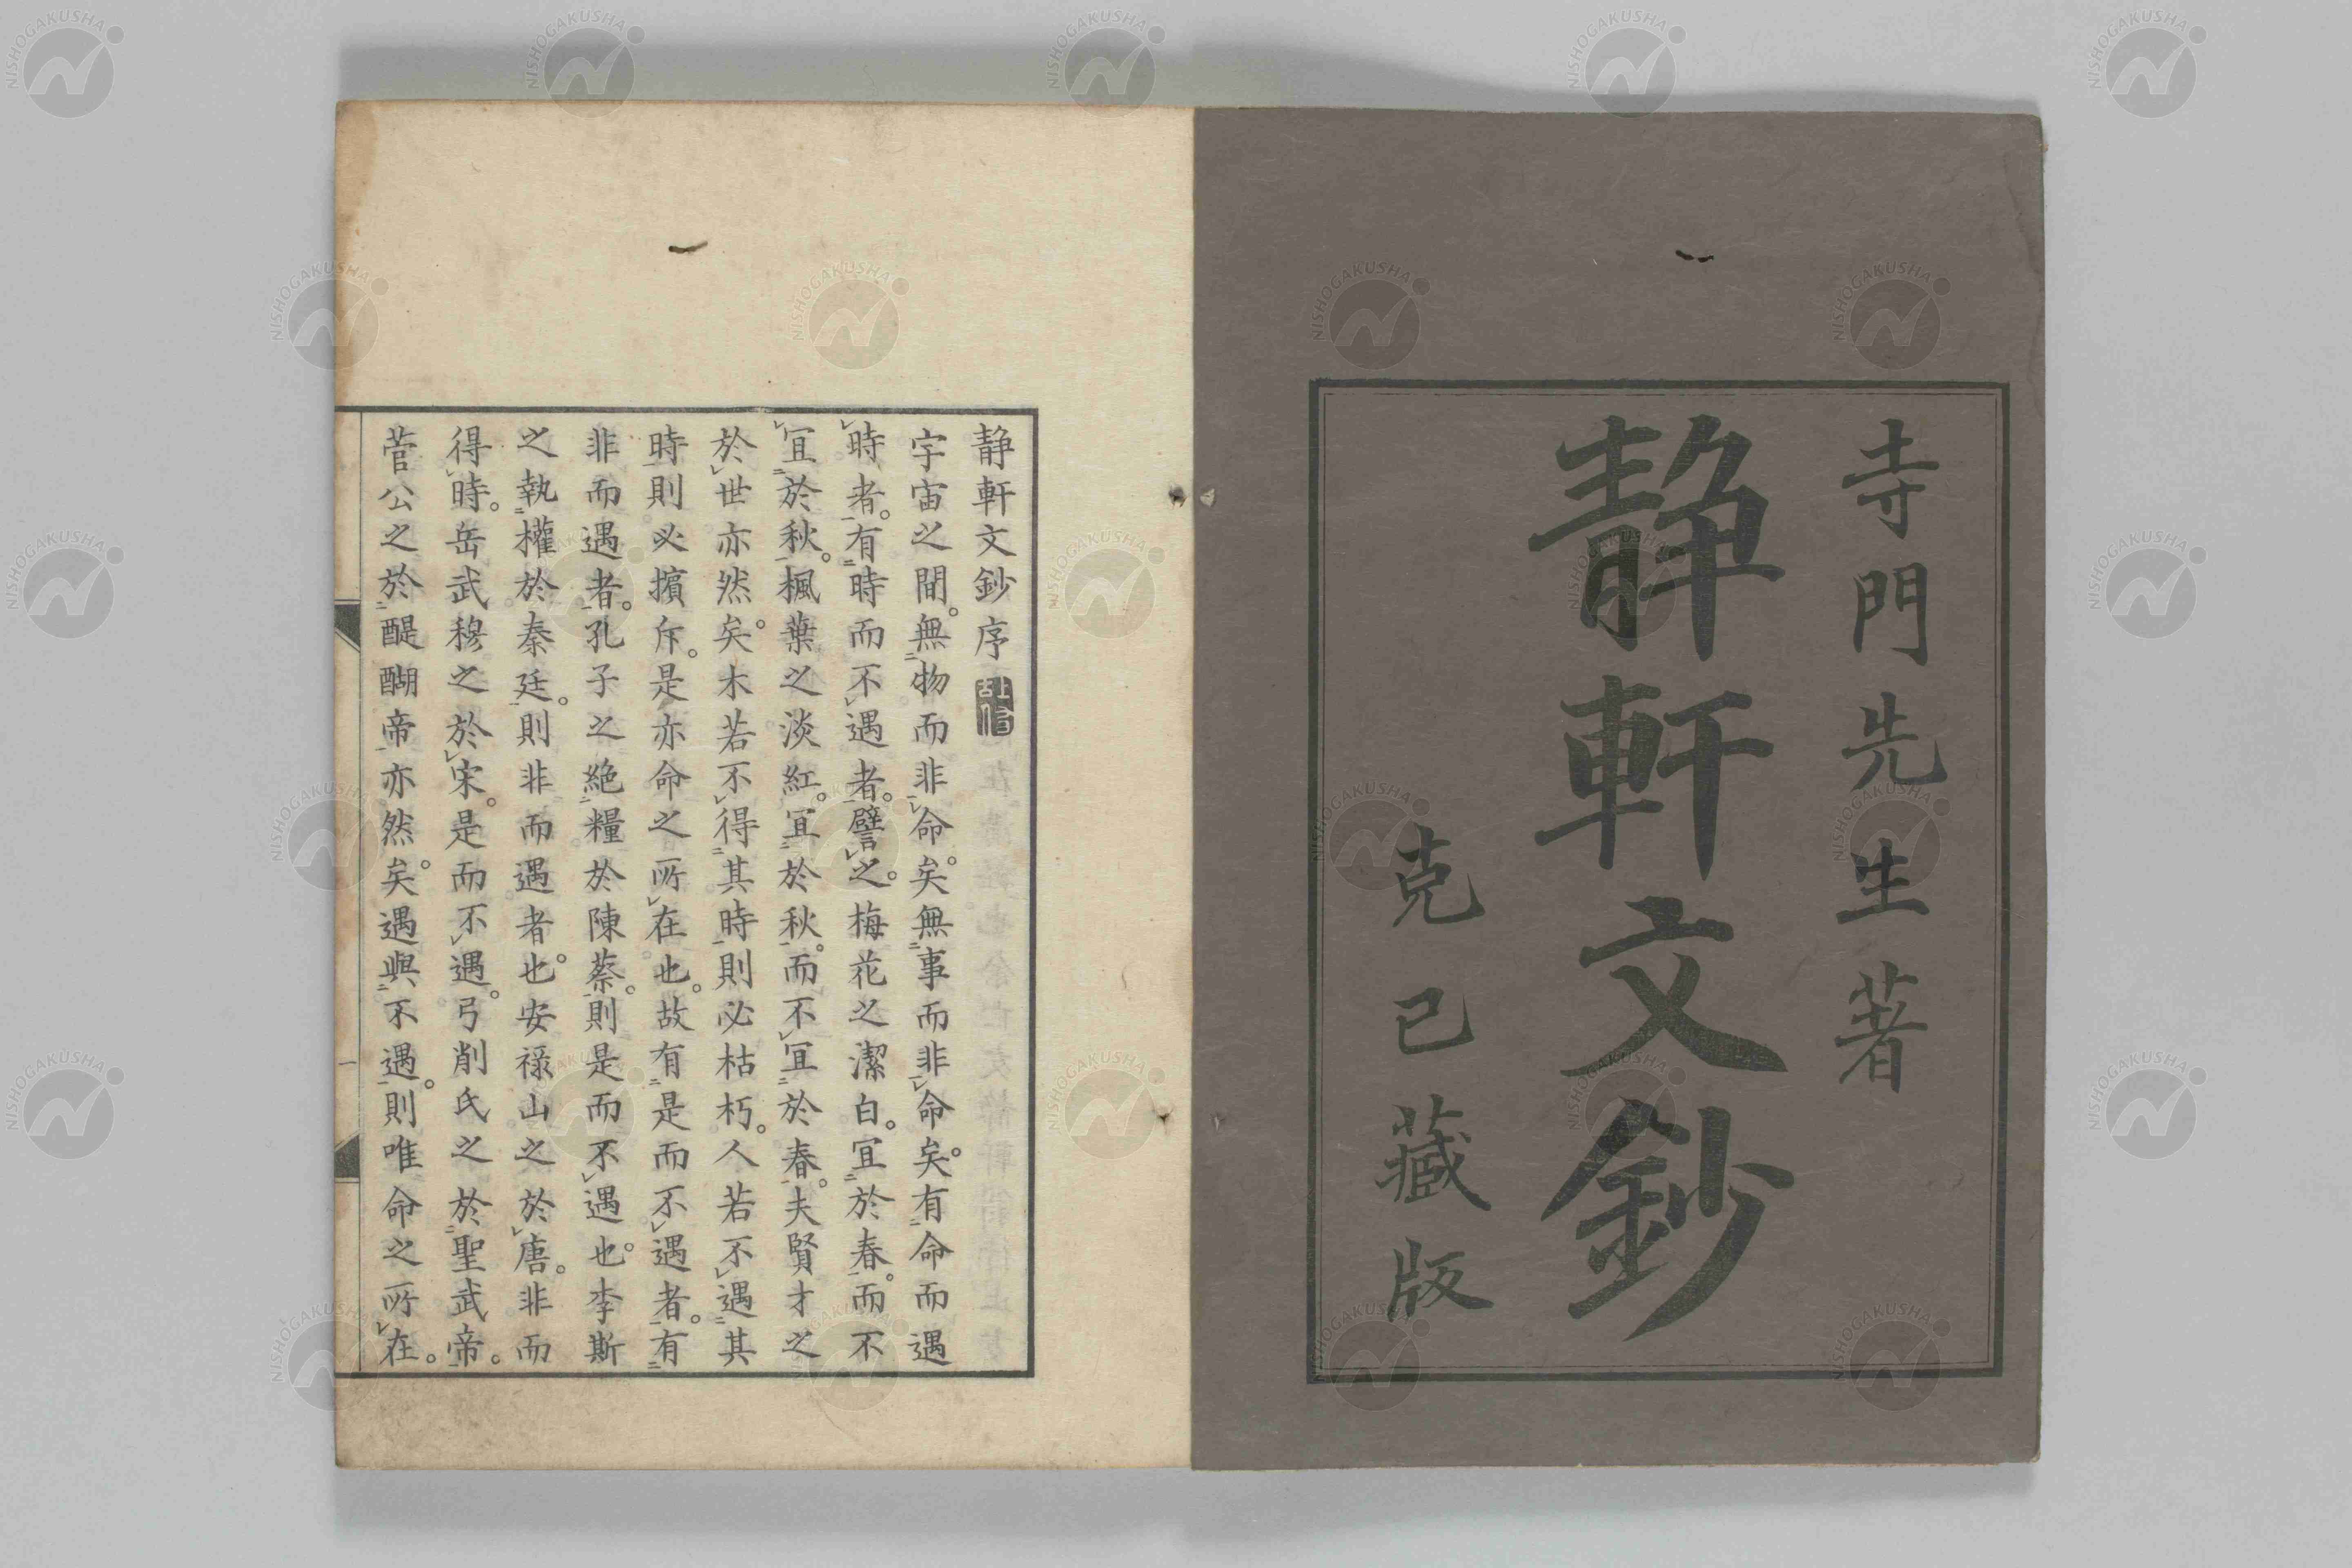 寺門先生著
靜軒文鈔
克己藏版
靜軒文鈔序
宇宙之間。無物而非命矣。無事而非命矣。有命而遇
時者。有時而不遇者。譬之。梅花之潔白。宜於春。而不
宜於秋。楓葉之淡紅。宜於秋。而不宜於春。夫賢才之
於世亦然矣。木若不得其時則必枯朽。人若不遇其
時則必擯斥。是亦命之所在也。故有是而不遇者。有
非而遇者。孔子之絶糧於陳蔡。則是而不遇也。李斯
之執權於秦廷。則非而遇者也。安祿山之於唐。非而
得時。岳武穆之於宋。是而不遇。弓削氏之於聖武帝。
菅公之於醍醐帝亦然矣。遇與不遇。則唯命之所在。
一
NISHOGAKUSHA